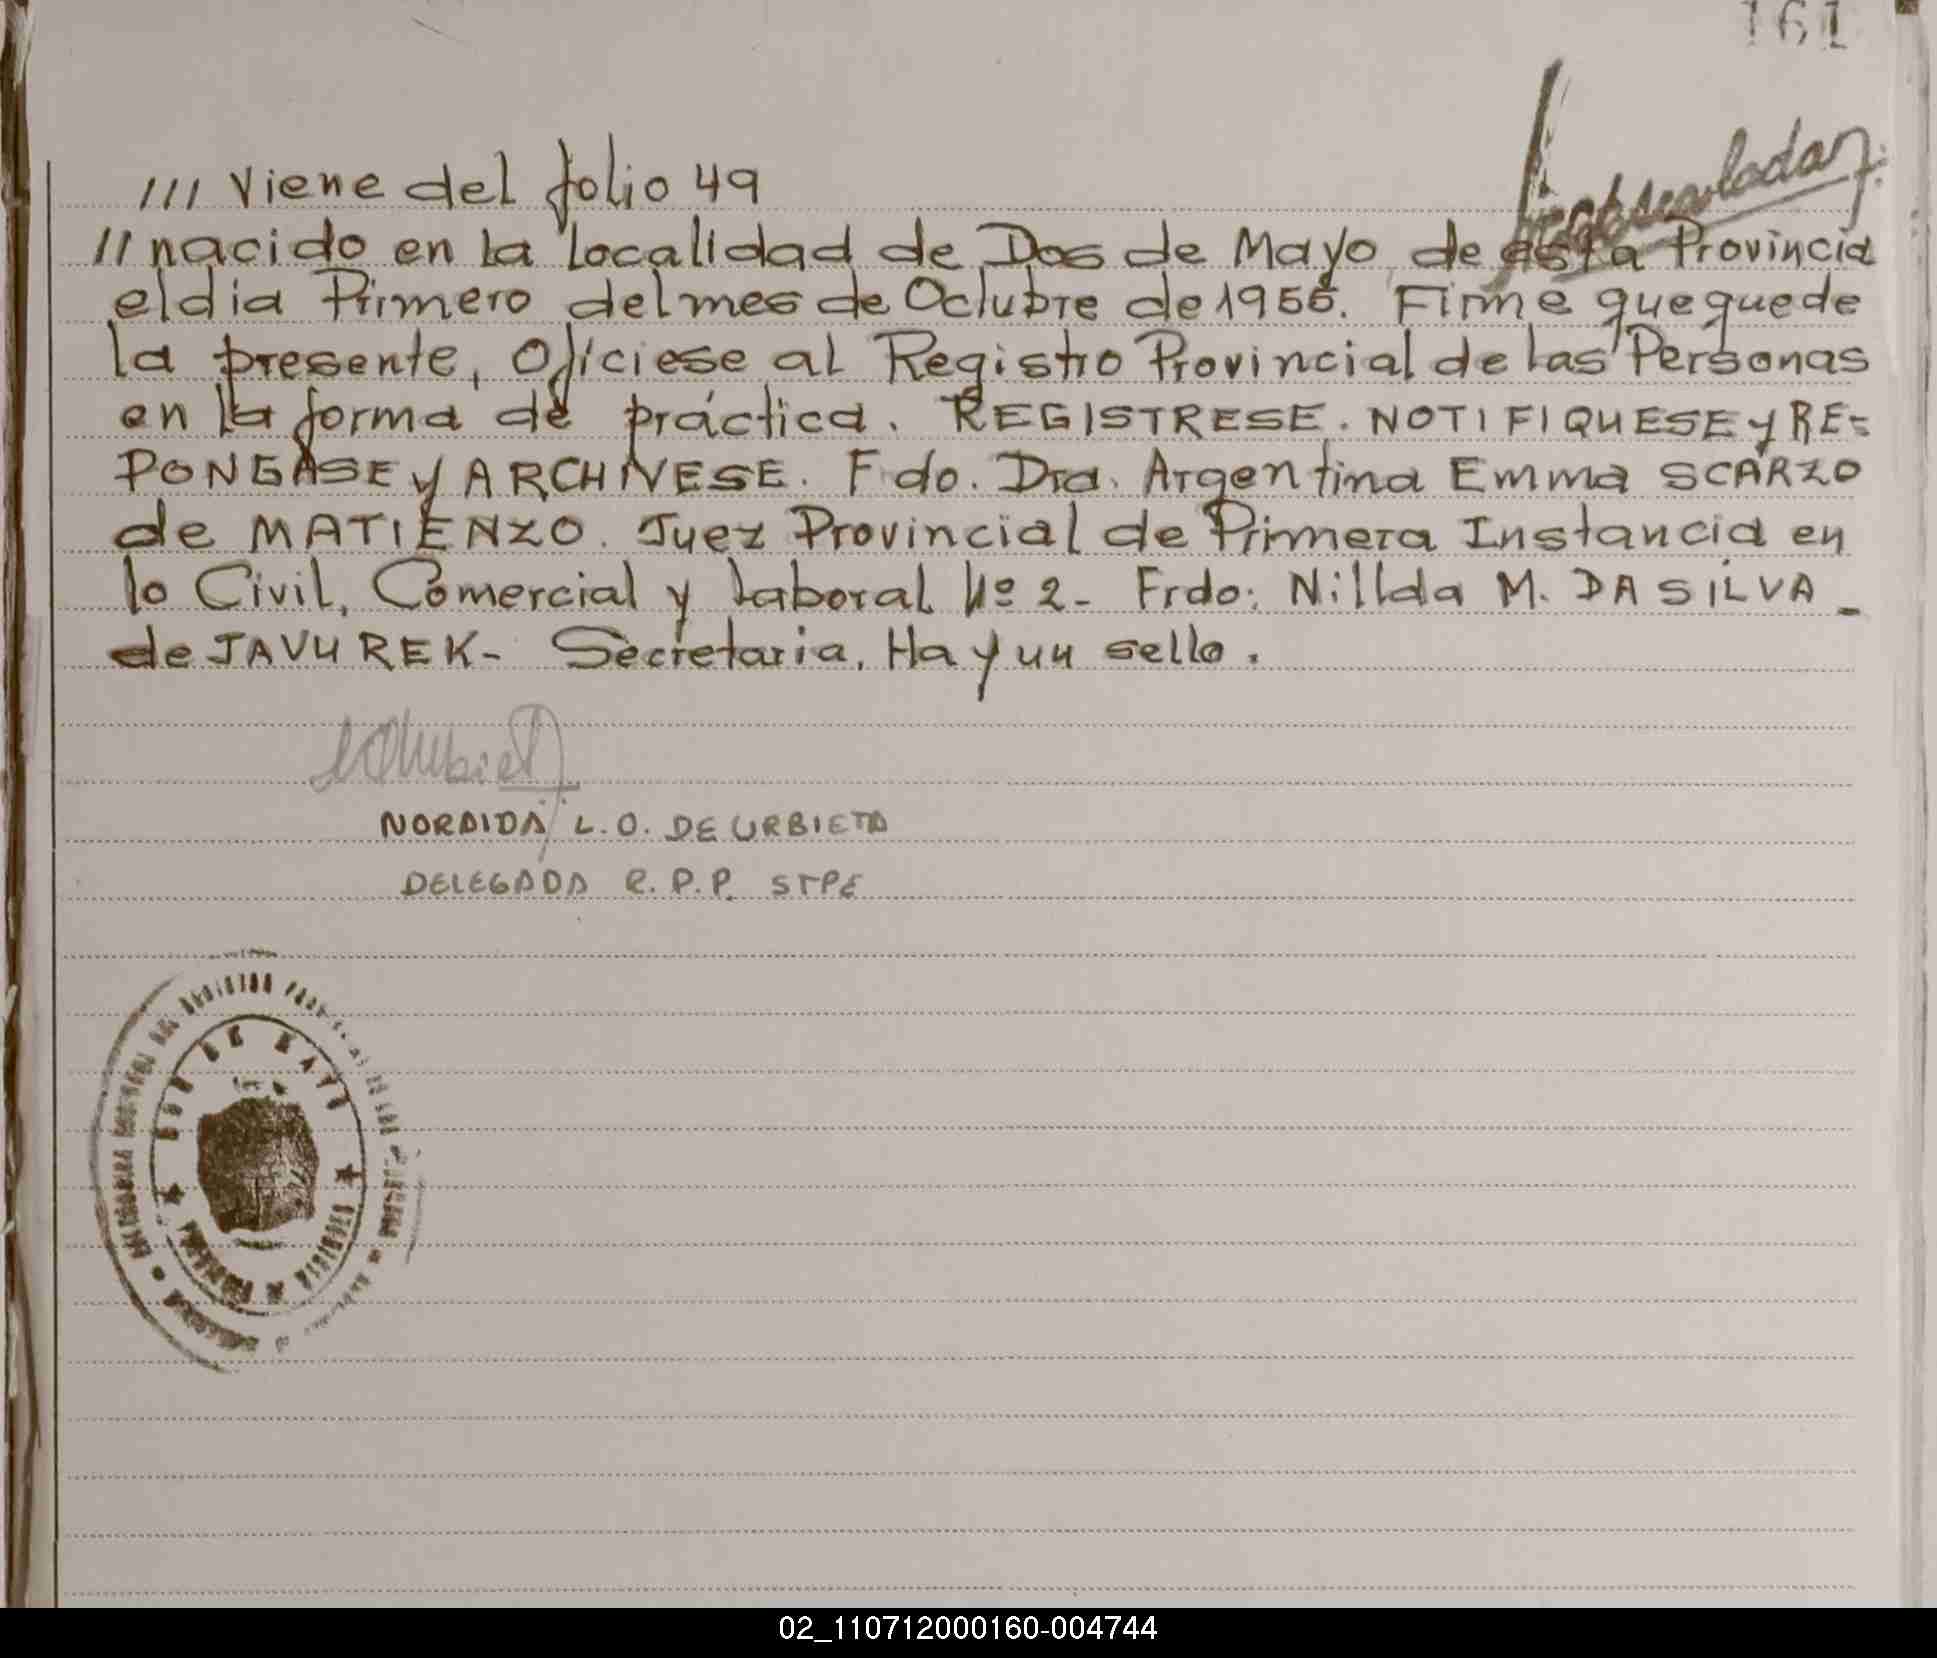 161
/// Viene del folio 49
// nacido en la localidad de Dos de Mayo de esta Provincia
el dia Primero del mes de Octubre de 1956. Firme que quede
la presente, Ofíciese al Registro Provincial de las Personas
en la forma de práctica. REGISTRESE. NOTIFIQUESE y RE=
PONGASE y ARCHIVESE. Fdo. Dra. Argentina Emma SCARZO
de MATIENZO. Juez Provincial de Primera Instancia en
lo Civil, Comercial y Laboral Nº 2- Frdo: Nillda M. DA SILVA _
de JAVUREK- Secretaria. Hay un sello.
NORDIDA L.O. DE URBIETA
DELEGADA R.P.P. STPE
DOS DE MAYO
02_110712000160-004744